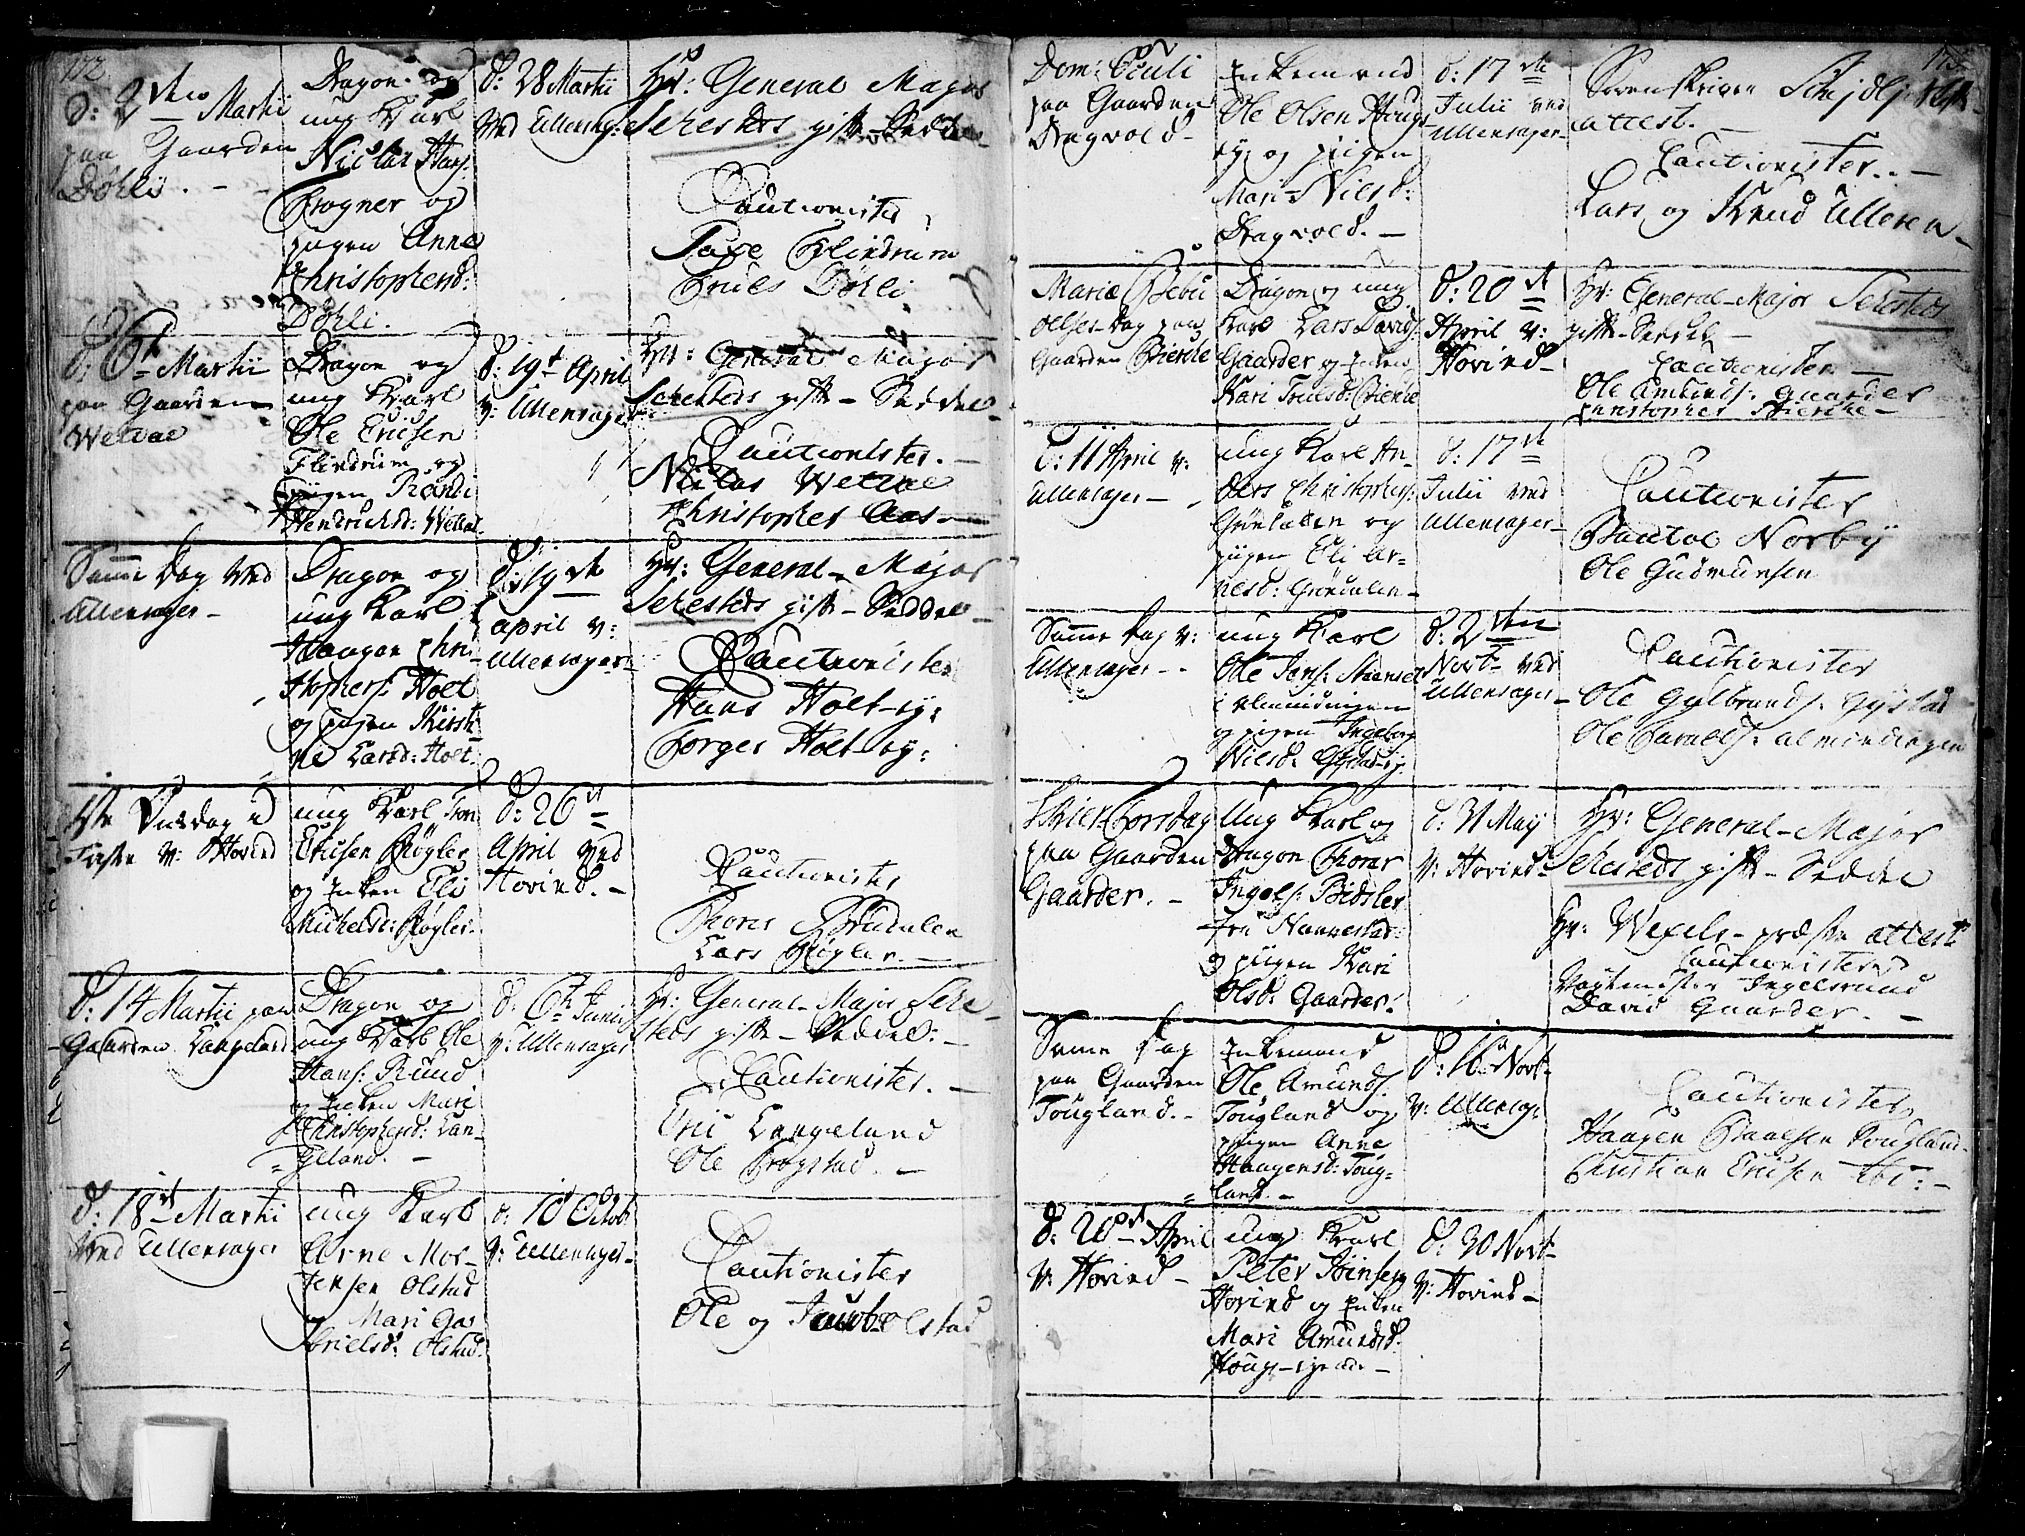 172
d: 2den Martii
paa Gaarden
Døhli. -
Dragon og
ung Karl
Niclas Hans:
Frogner og
pigen Anne
Christophersd:
Døhli.
d: 28 Martii
ved Ullensag:
Hr: General Major
Sehesteds gifte-Seddel
Cautionister
Povel Flindrum
Truls Døhli
d: 6t Martii
paa Gaarden
Welvae
Dragon og
ung Karl
Ole Ericsen
Flindrum og
pigen Randi
Hendrichsd: Welvae
d: 19t April
v: Ullensager
Hr: General Major
Sehesteds gifte-Seddel
Cautionister. -
Niclas Welvae
Christopher Aas -
Samme Dag ved
Ullensager -
Dragon og
ung Karl
Haagen Chri-
stophers: Holt
og pigen Kirsti-
ne Larsd: Holt.
d: 19de
April v:
Ullensager
Hr: General-Major
Sehesteds gifte-Seddel
Cautionister
Hans Holt-ey:
Torger Holt-ey:
1ste Tirsdag i
Faste v: Hovind
ung Karl
Ericsen Røgler
og Enken Eli
Michelsd: Røgler.
d: 26de
April ved
Hovind. -
Cautionister
Thores
Lars Røgler. -
d: 14 Martii paa
Gaarden Langeland
Dragon og
ung Karl Ole
Hans: Rund
og Enken Mari
Christophersd: Lan-
geland. -
d: 6te Junii
v: Ullensager
Hr: General-Major Sehe-
steds gifte-Seddel: -
Cautionister. -
Eric Langeland
Ole Frogstad. -
d: 18de Martii
ved Ullensager
ung Karl
Arne Mor-
tensen Olstad
og Mari Ga-
brielsd: Olstad.
d: 10 Octobr
v: Ullensager -
Cautionister
Ole og Jacob Olstad
173
Dom: Oculi
paa Gaarden
Dragvold -
Enkemand
Ole Olsen Houg-
ey og pigen
Mari Nilsd:
Dragvold. -
d: 17de
Julii ved
Ullensager -
Sorenskriver
attest. -
Cautionister. -
Lars og Knud Ulleren -
Mariæ Bebu-
delses-Dag paa
Gaarden Bierche
Dragon og ung
Karl Lars Davids:
Gaarder og Enken
Kari Trulsd: Bierche
d: 20de
April v:
Hovind -
Hr: General-Major Sehesteds
gifte-Seddel -
Cautionister -
Ole Amunds: Gaarder
Christopher Bierche -
d: 11 April v:
Ullensager -
ung Karl An-
ders Christophers:
Grøndalen og
pigen Eli Ar-
nesd: Grøndalen -
d: 17de
Julii ved
Ullensager -
Cautionister
Norby
Ole Gudmunsen
Samme Dag v:
Ullensager -
ung Karl
Ole Jens:
i Almindingen
og pigen Ingeborg
Nilsd:
d: 2den
Novr ved
Ullensager -
Cautionister
Ole Gulbrands: Gystad
Ole almindingen
Skiertorsdag
paa Gaarden
Gaarder. -
Ung Karl og
Dragon Thorer
Ingols:
fra Nannestad:
og pigen Kari
Olsd: Gaarder.
d: 31 May
v: Hovind -
Hr: General-Major
Sehesteds gifte-Seddel
Hr: Wexels-præste attest
Cautionister
Vagtmester Ingelsrud
David Gaarder. -
Samme dag
paa Gaarden
Tougland. -
Enkemand
Ole Amunds:
Tougland og
pigen Anne
Haagensd: Toug-
land. -
d: 16de Novr
v: Ullensag:
Cautionister
Haagen Tougland.
Christian Ericsen ibi: -
d: 20de April
v: Hovind -
ung Karl
Peter Jensen
Hovind og Enken
Mari Amundsd:
Houg-
d: 30 Novr
v: Hovind -